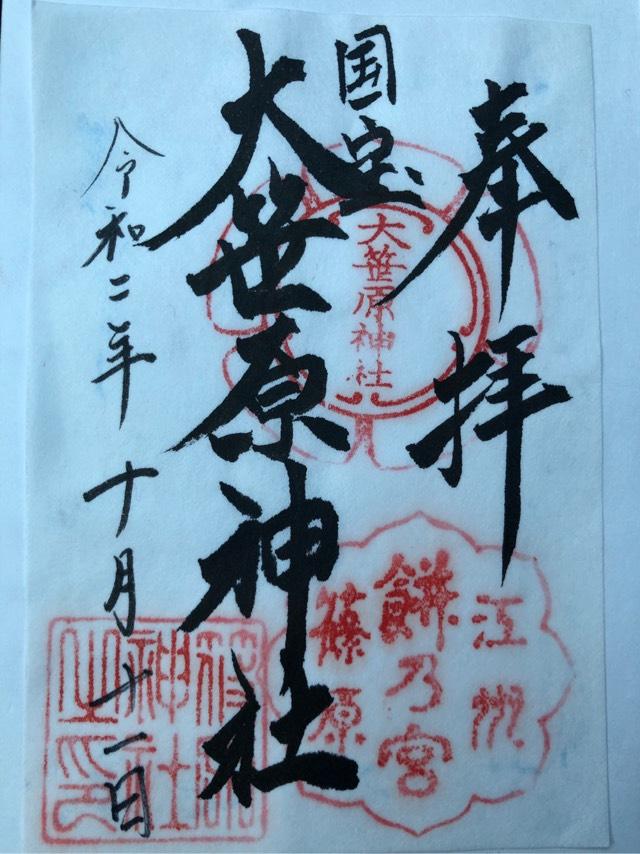 奉拝
国宝
大笹原神社
令和二年十月十一日
大笹原神社
江州
餅乃宮
篠原
篠原
神社
之印